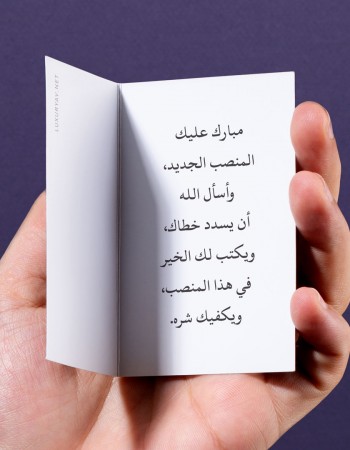 مبارك عليك
المنصب الجديد،
وأسأل الله
أن يسدد خطاك،
ويكتب لك الخير
في هذا المنصب،
ويكفيك شره.
LUXURYAY.NET